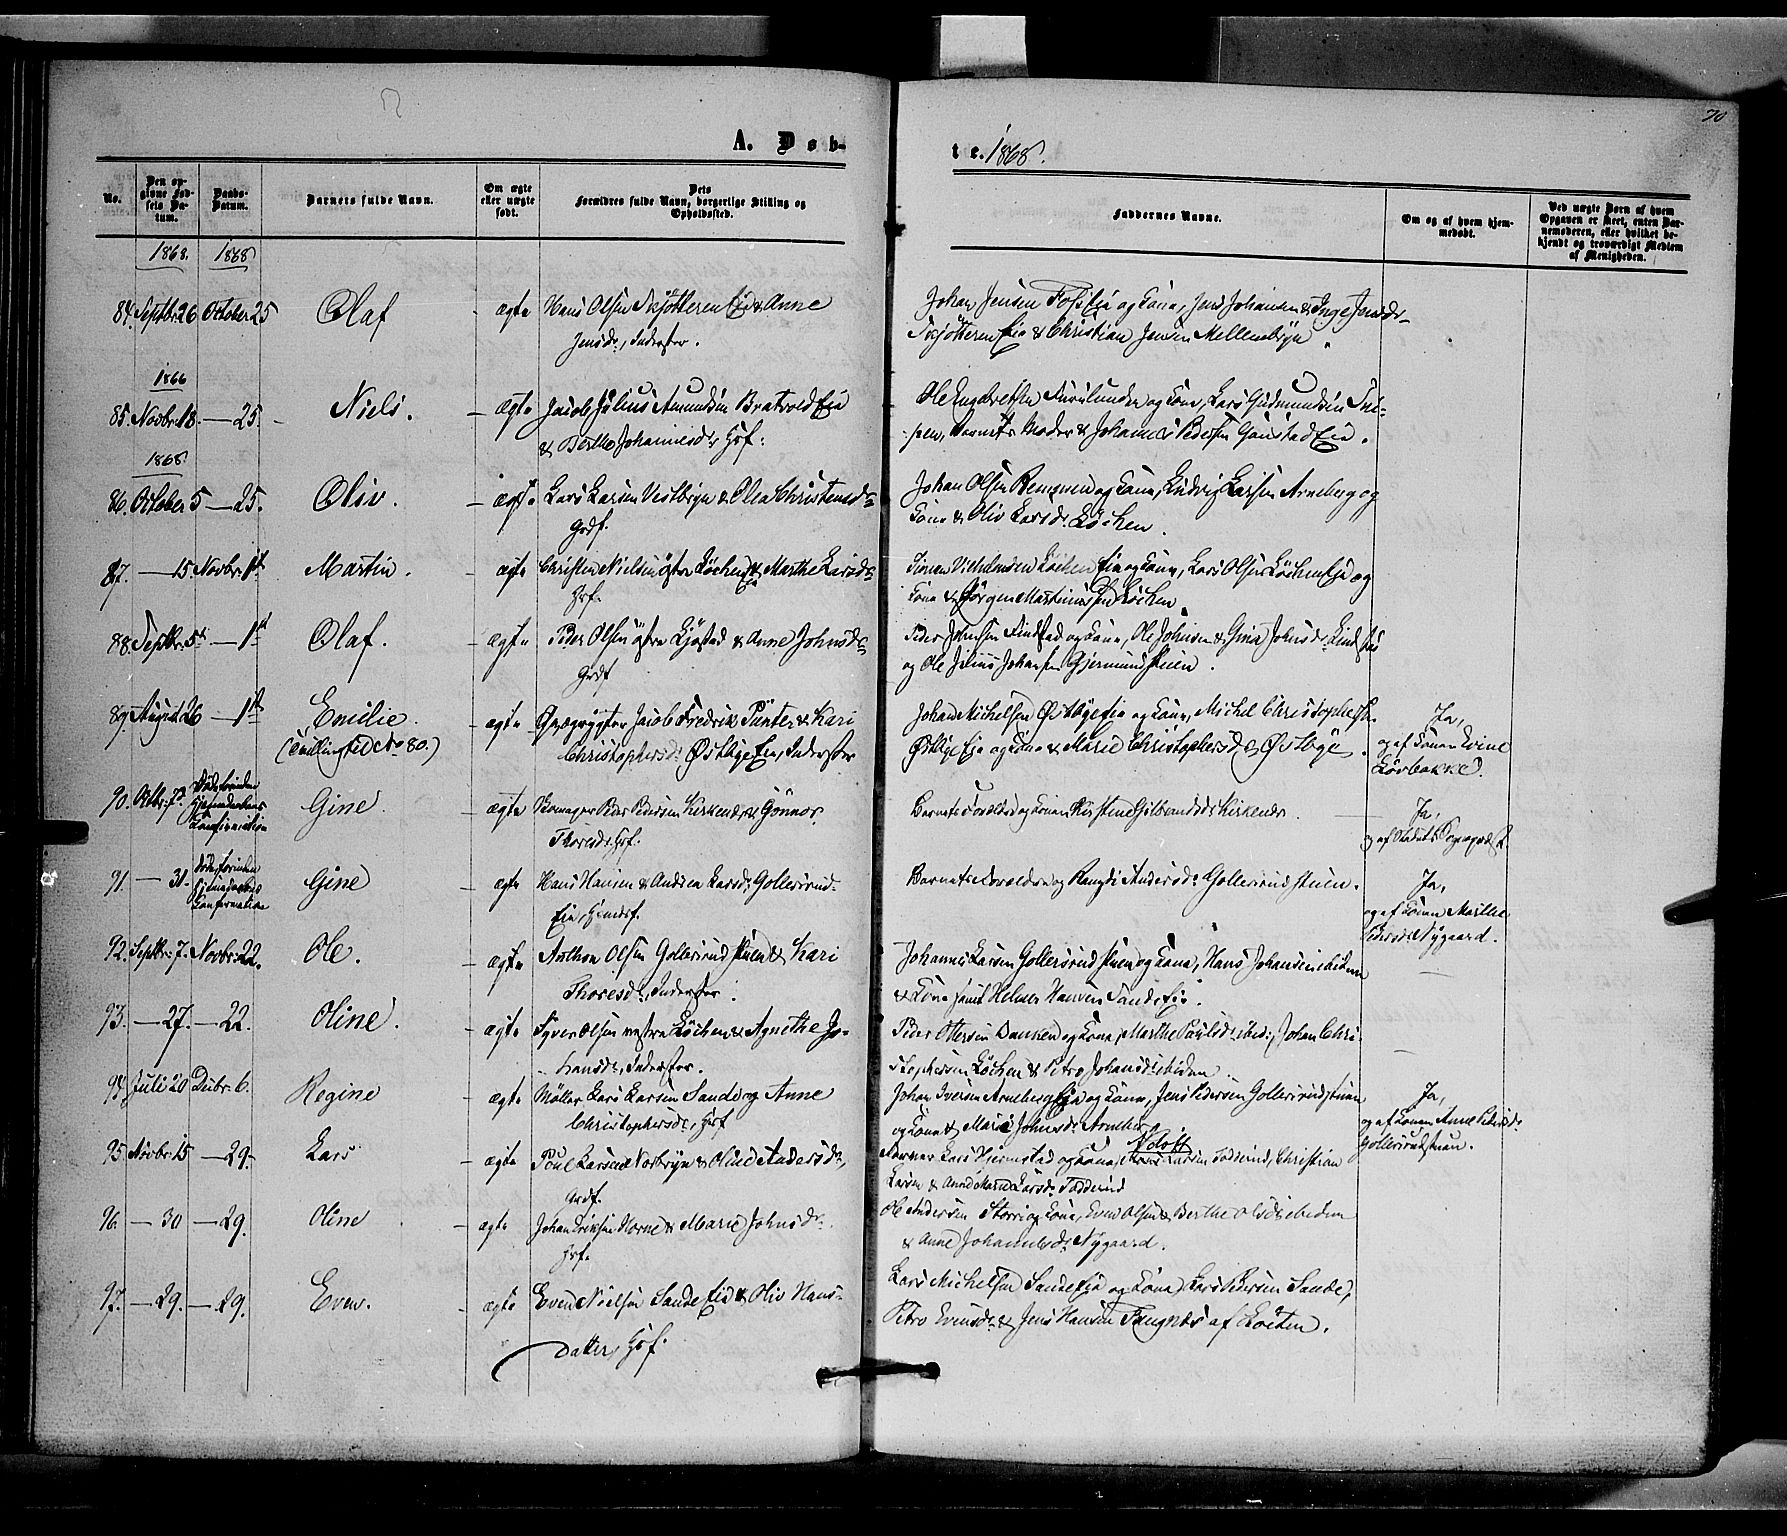 70
A. Døb-
te. 1868.
No.
Den op-
givne Fød-
sels Da-
tum.
Daabs-
Datum.
Barnets fulde Navn.
Om ægte
eller uægte
født.
Dets
Forældres fulde Navn, borgerlige Stilling og
Opholdssted.
Faddernes Navne.
Om og af hvem hjem-
medøbt.
Ved uægte Børn af hvem
Opgaven er skeet, enten Bar-
nemoderen, eller hvilket be-
kjendt og troværdigt Medlem
af Menigheden.
1868. 1868
84. Septbr. 26 October 25 Olaf - ægte Hans Olsen Skjötteren Eie & Anne
Jensdr., Inderster.
Johan Jensen Eie og Kone, Jens Johansen & Inge Jensdr.
Skjötteren Eie & Christian Jensen Mellembye
1866
85. Novbr. 18. — 25. - Niels. - ægte Jacob Julius Amundsen Bratvold Eie
& Berthe Johannesdr. Hsf:
Ole Engebrethsen og Kone, Lars Gudmundsen
Barnets Moder & Johannes Pedersen Gaustad Eie.
1868.
86. October 5 — 25. Oliv. - ægte Lars Larsen Vestbyn & Olea Christensdr.
Grdf.
Johan Olsen Remmen og Kone, Ludvig Larsen Arneberg og
Kone & Oliv Larsdr. Löchen.
87. — 15. Novbr. 1st Martin. - ægte Christen Nielsen östre Löchen & Marthe Larsdr.
Hsf.
Simen Vilhelmsen Löchen Eie og Kone, Lars Olsen Löchen Eie og
Kone & Jörgen Martinussen Löchen.
88. Septbr. 5t — 1st Olaf. - ægte Peder Olsen östre Ljøstad & Anne Johnsdr.
Grdf
Peder Johnsen Lindstad og Kone, Ole Johnsen & Gina Johnsdr. Lindstad
og Ole Julius Johansen Gjermundstuen.
89. August 26 — 1st Emilie. - ægte Jacob Fredrik Punter & Kari
(Tvilling No 80.) Christophersdr. Østbye Eie, Inderster
Johan Michelsen Østbye Eie og Kone, Michel Christophersen
Østbye Eie og Kone & Marie Christophersdr. Østbye.
Ja,
og af Konen Eline
Lövbakke.
90. Octbr. 7d Döde forinden
Hjemmedaabens
Confirmation Gine. ægte Skomager Peder Pedersen Kirkenær & Gönnor
Thoresdr. Hsf.
Barnets Forældre og Konen Kirstine Gulbrandsdr. Kirkenær.
Ja,
og af Stedets Sognepræst.
91. — 31. Döde forinden
Hjemmedaabens
Confirmation Gine - ægte Hans Hansen & Andrea Larsdr. Gollerrud-
Eie,
Barnets Forældre og Rangdi Andersdr. Gollerrudstuen.
Ja,
og af Konen Marthe
Pedersdr. Nygaard.
92. Septbr. 7. Novbr. 22. Ole. - ægte Anthon Olsen Gollerrudstuen & Kari
Thoresdr., Inderster.
Johannes Larsen Gollersrudstuen og Kone, Hans Johansen ibidem
& Kone samt Helmer Hansen Sande Eie.
93. — 27. — 22. Oline. - ægte Syver Olsen vestre Löchen & Agnethe Jo-
hansdr., Inderster.
Peder Ottersen Banken og Kone, Marthe Poulsdr. ibid:, Johan Chri-
stophersen Löchen & Petra Johansdr. ibidem
94. Juli 20 Decbr. 6. Regine - ægte Möller Lars Larsen Sande og Anne
Christophersdr., Hsf
Johan Iversen Arneberg Eie og Kone, Jens Pedersen Gollerrudstuen
og Kone & Marie Johnsdr. Arneberg
Ja,
og af Konen Anne Pedersdr.
Gollerrudstuen.
95. Novbr. 15 — 29. Lars - ægte Poul Larsen Norbryn & Oline Andersdr.,
Grdf.
Adolf
Lars Hjermstad og Kone, Larsen Todderud, Christian
Larsen & Anne Marie Larsdr. Todderud
96. — 30 — 29. Oline - ægte Johan Eriksen Horne & Marie Johnsdr.
Hsf.
Ole Andersen Storri og Kone, Even Olsen & Berthe Olsdr. ibidem
& Anne Johannesdr. Nygaard.
97. — 29. — 29. Even. - ægte Even Nielsen Sande Eie & Oliv Hans-
datter, Hsf.
Lars Michelsen Sande Eie og Kone, Lars Pedersen Sande,
Petra Evensdr. & Jens Hansen Faugnæs af Löiten.